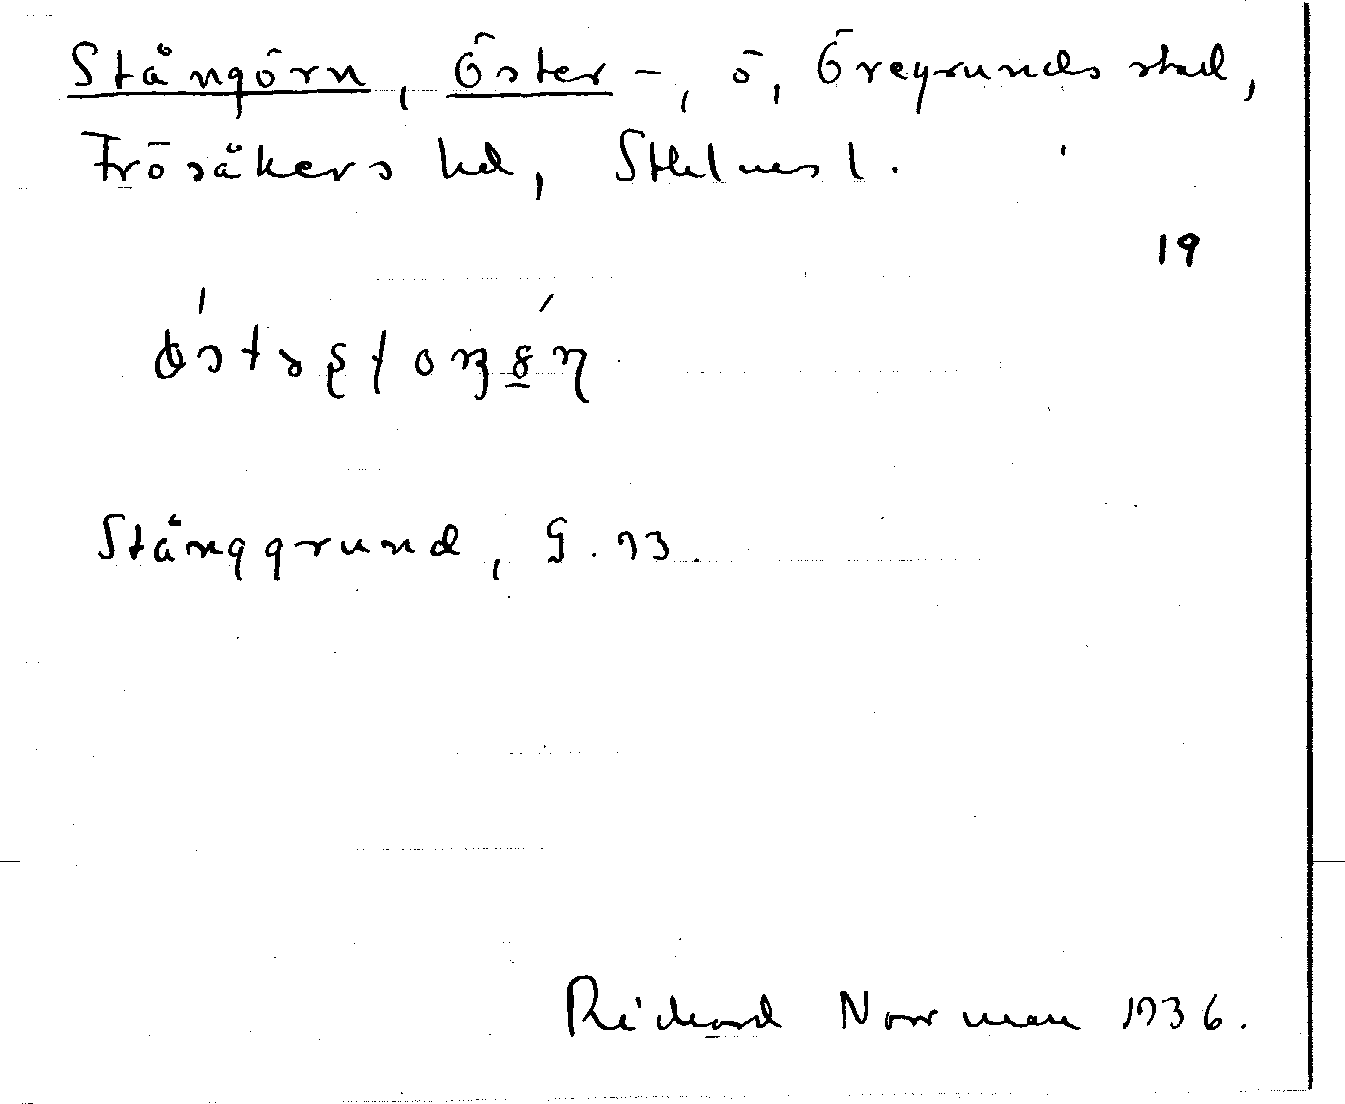 Stångörn, Öster-, ö, Öregrunds stad,
Frösäkers hd, Sthlms l.
19
Stånggrund, G. 93.
Richard Norrman 1936.